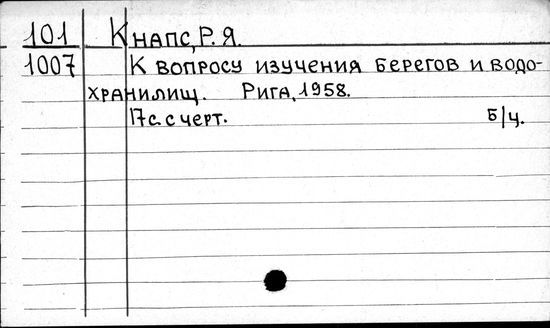 101 Кнапс, Р. Я.
1007 К вопросу изучения берегов и водо-
хранилищ. Рига, 1958.
17 с. с черт. Б/ц.